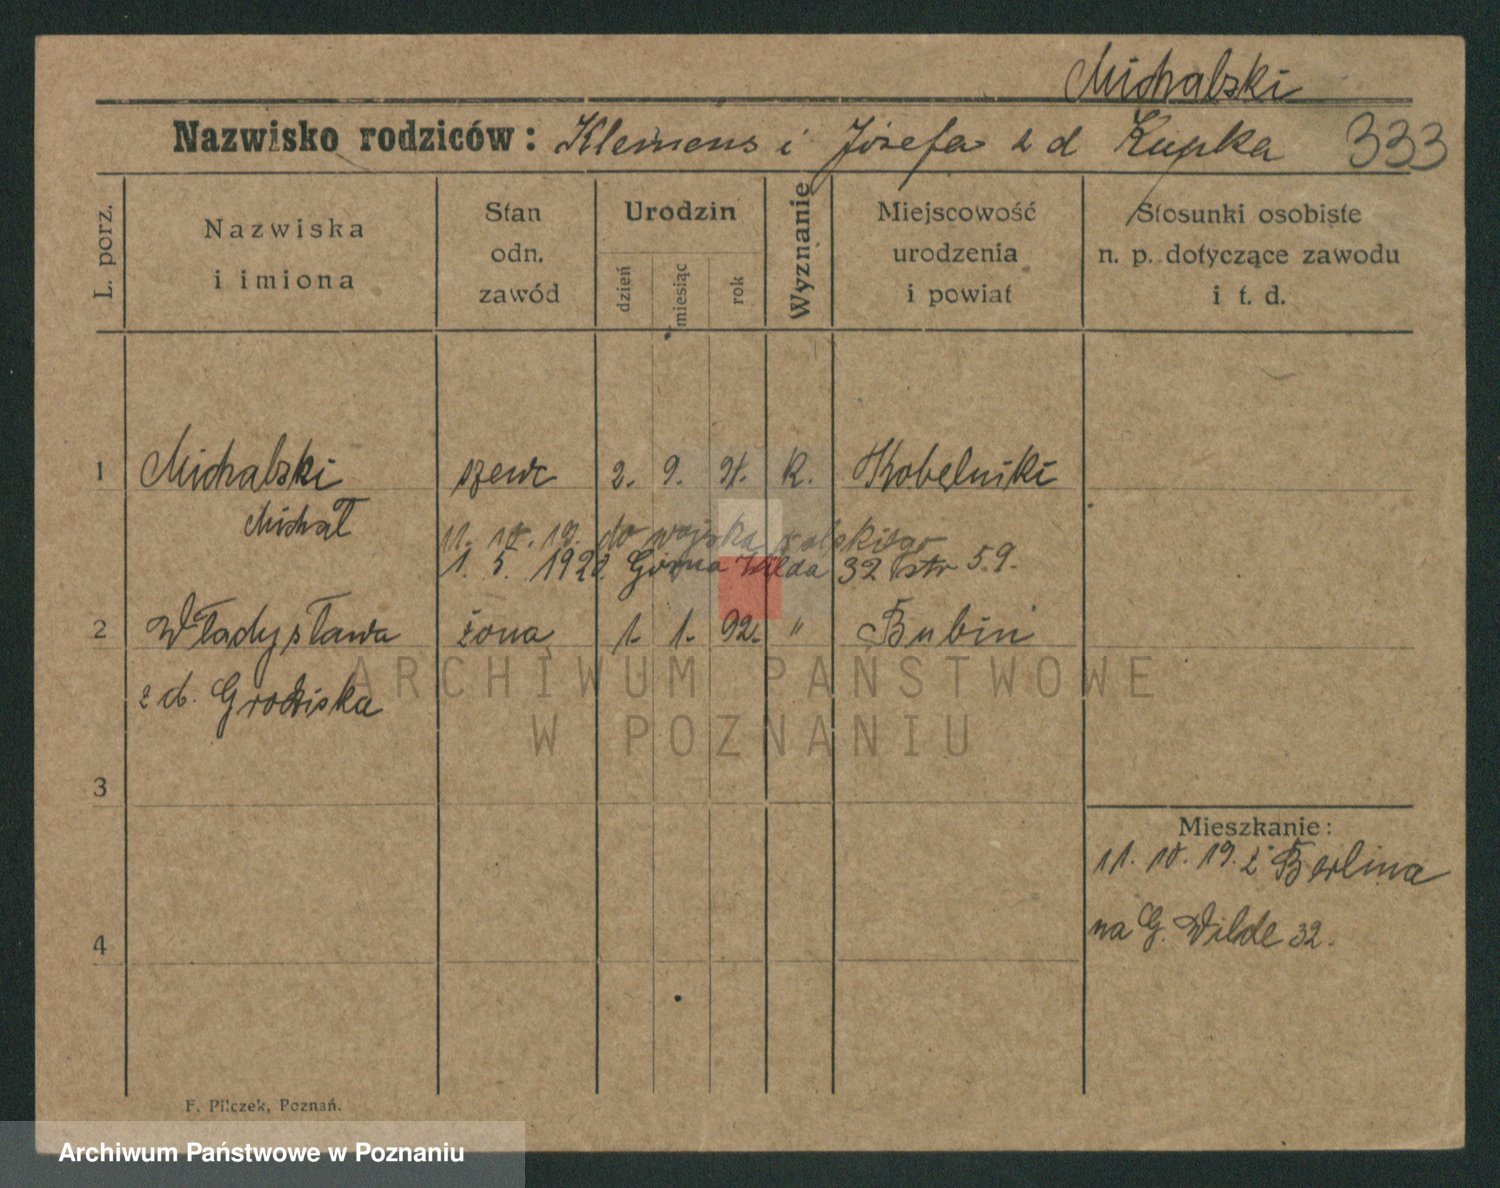 Michalski
Nazwisko rodziców: Klemens i Józefa z d Kupka 333
L. porz.
Nazwiska i imiona
Stan odn. zawód
Urodzin
dzień
miesiąc
rok
Wyznanie
Miejscowość urodzenia i powiat
Stosunki osobiste n. p. dotyczące zawodu i t. d.
1 Michalski szewc 2. 9. 91. K. Kobelniki
Michał
11. 10. 19. do wojska polskiego
1. 5. 1922. Górna Wilda 32 str 59.
2 Władysława żona 1. 1. 92. " Bubin
z d. Grodziska
3
Mieszkanie:
11. 10. 19. z Berlina
na G. Wilde 32.
4
F. Pilczek, Poznań.
ARCHIWUM PAŃSTWOWE
W POZNANIU
Archiwum Państwowe w Poznaniu